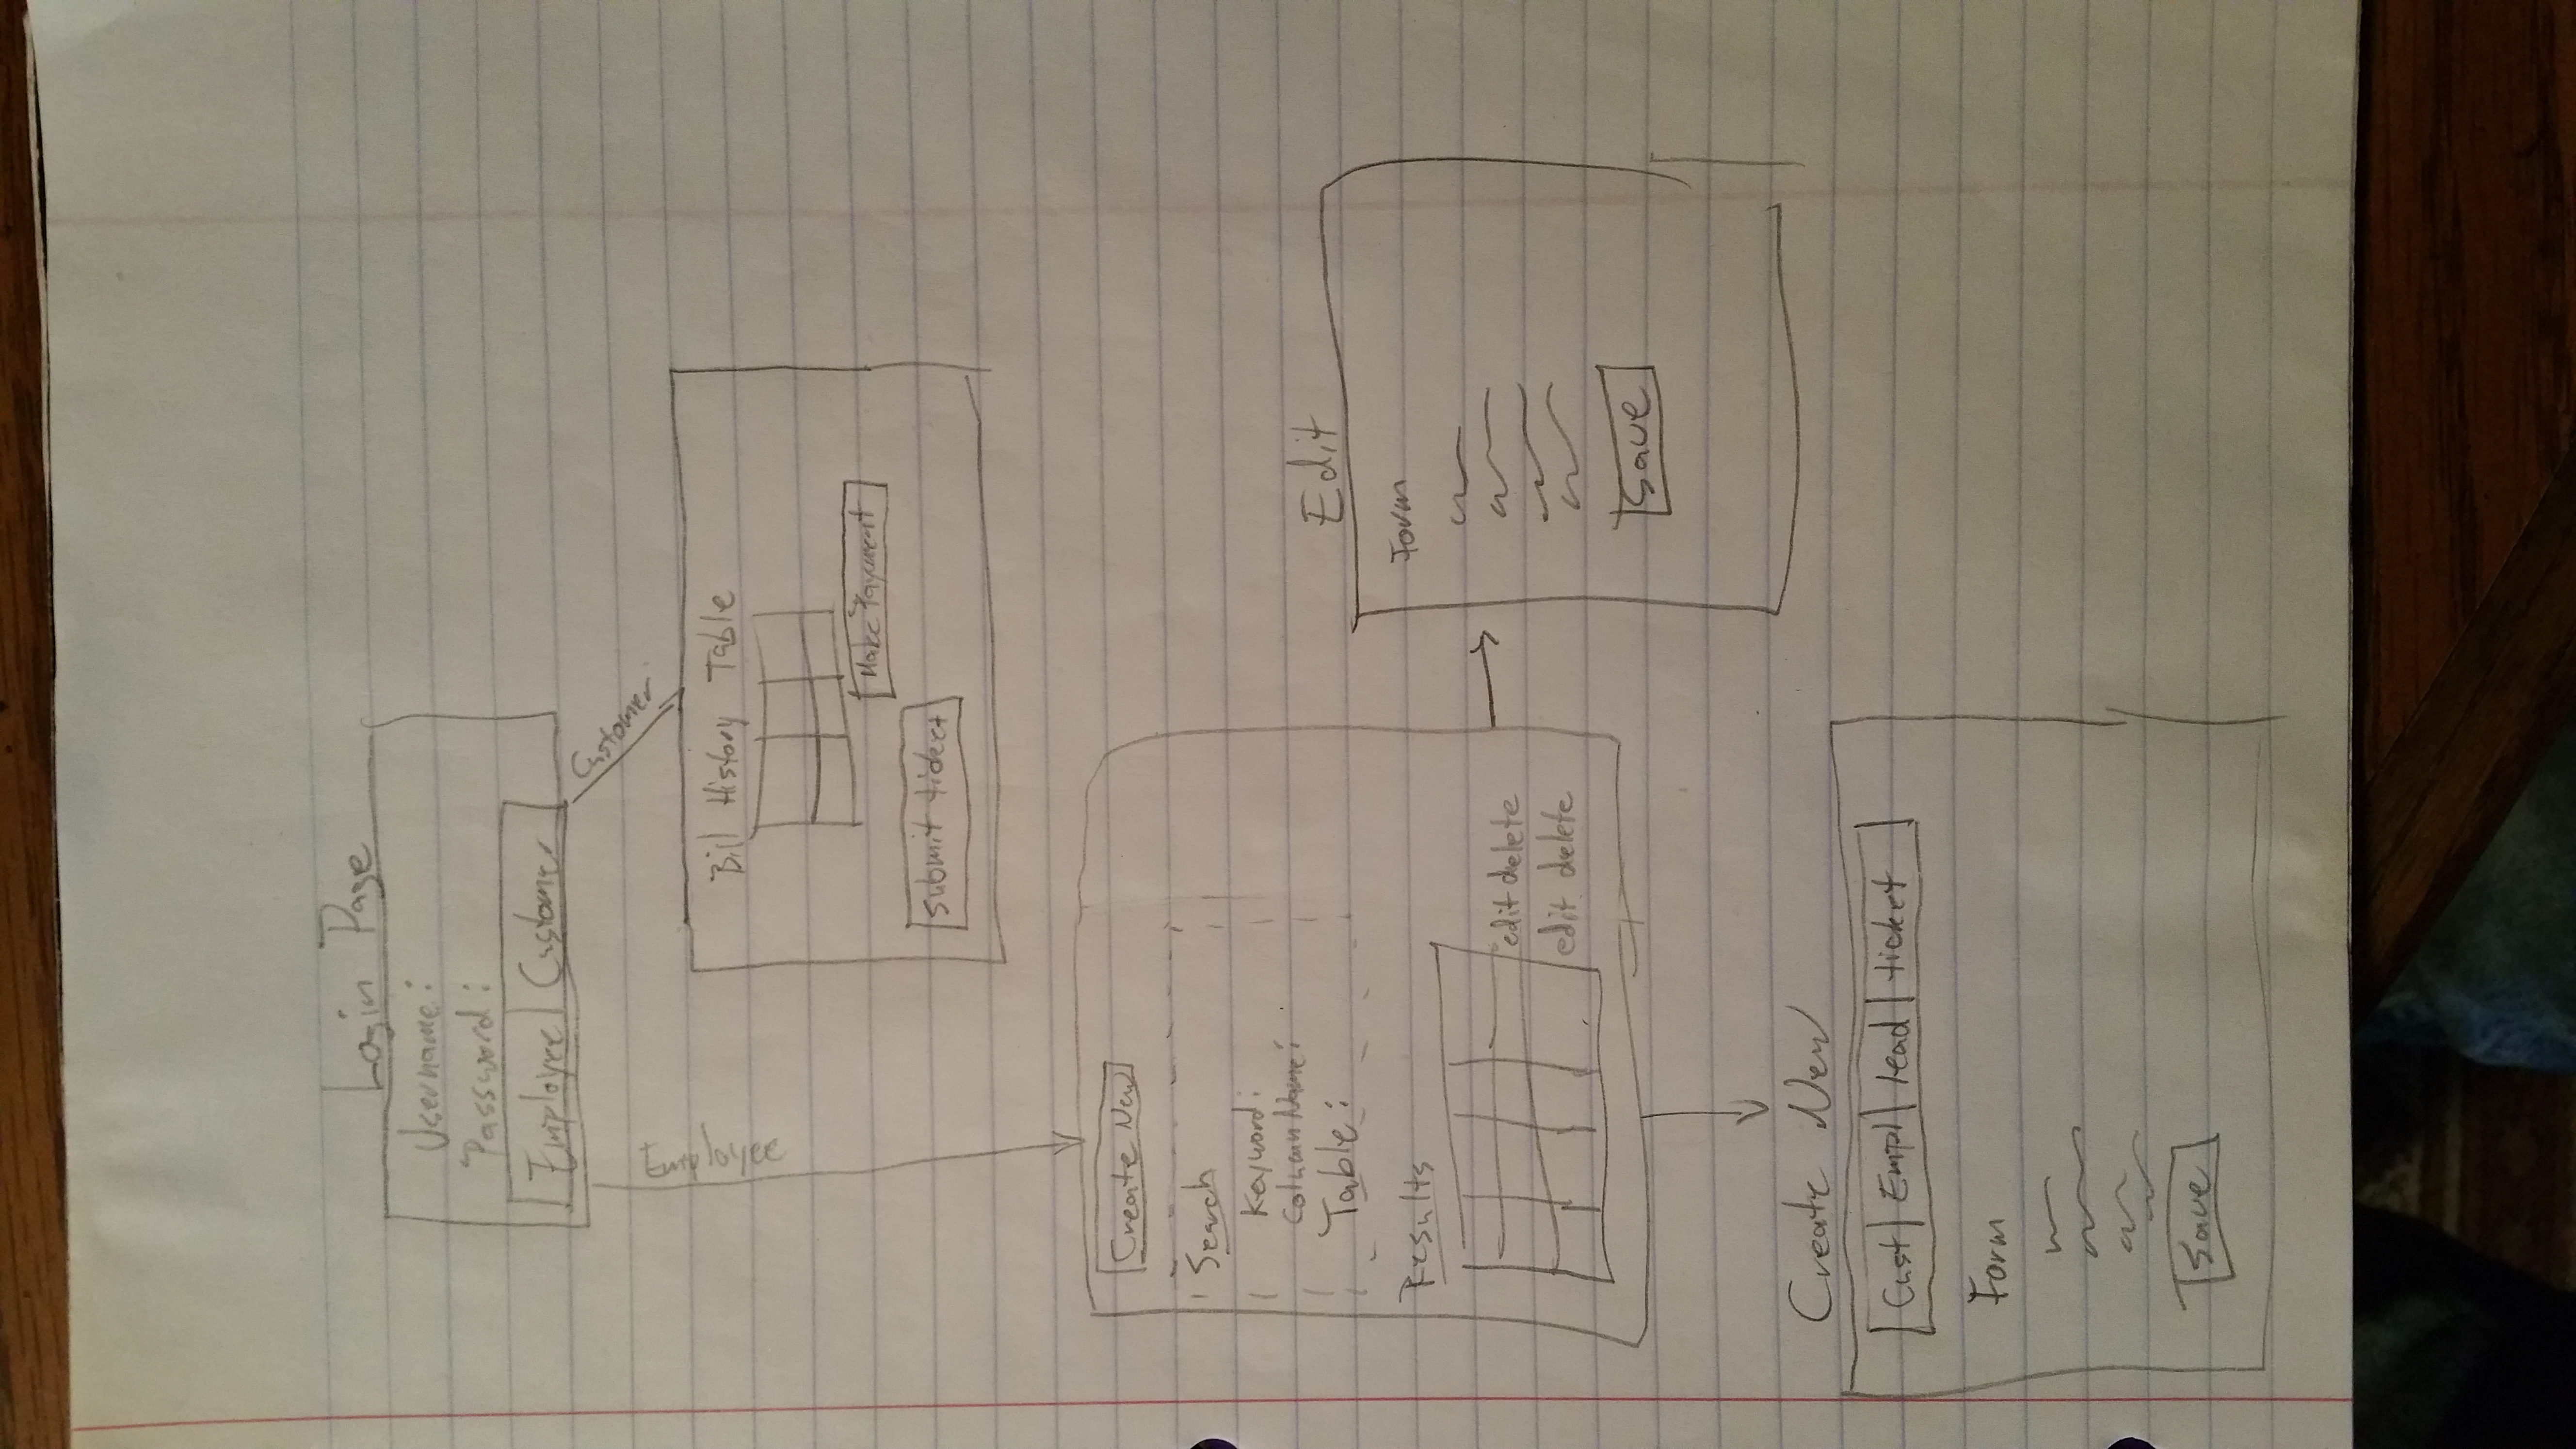 Login Page
Username:
Password:
Employee Customer
Customer
Employee
Bill History Table
Make Payment
Submit ticket
Create New
Search
Keyword:
Column Name:
Table:
Results
edit delete
edit delete
Edit
Form
Save
Create New
Cust Empl lead ticket
Form
Save